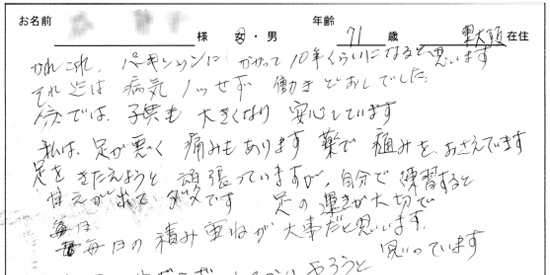 お名前 様 女・男 年齢 71 歳 東大阪 在住
かれこれ、パーキンソンにかかって10年くらいになると思います
それ迄は病気1つせず働きどおしでした
今では、子供も大きくなり安心しています
私は、足が悪く痛みもあります薬で痛みをおさえています
足をきたえようと頑張っていますが、自分で練習すると
甘えが出てダメです 足の運きが大切で
毎日
毎日の積み重ねが大事だと思います。
やろうと思っています